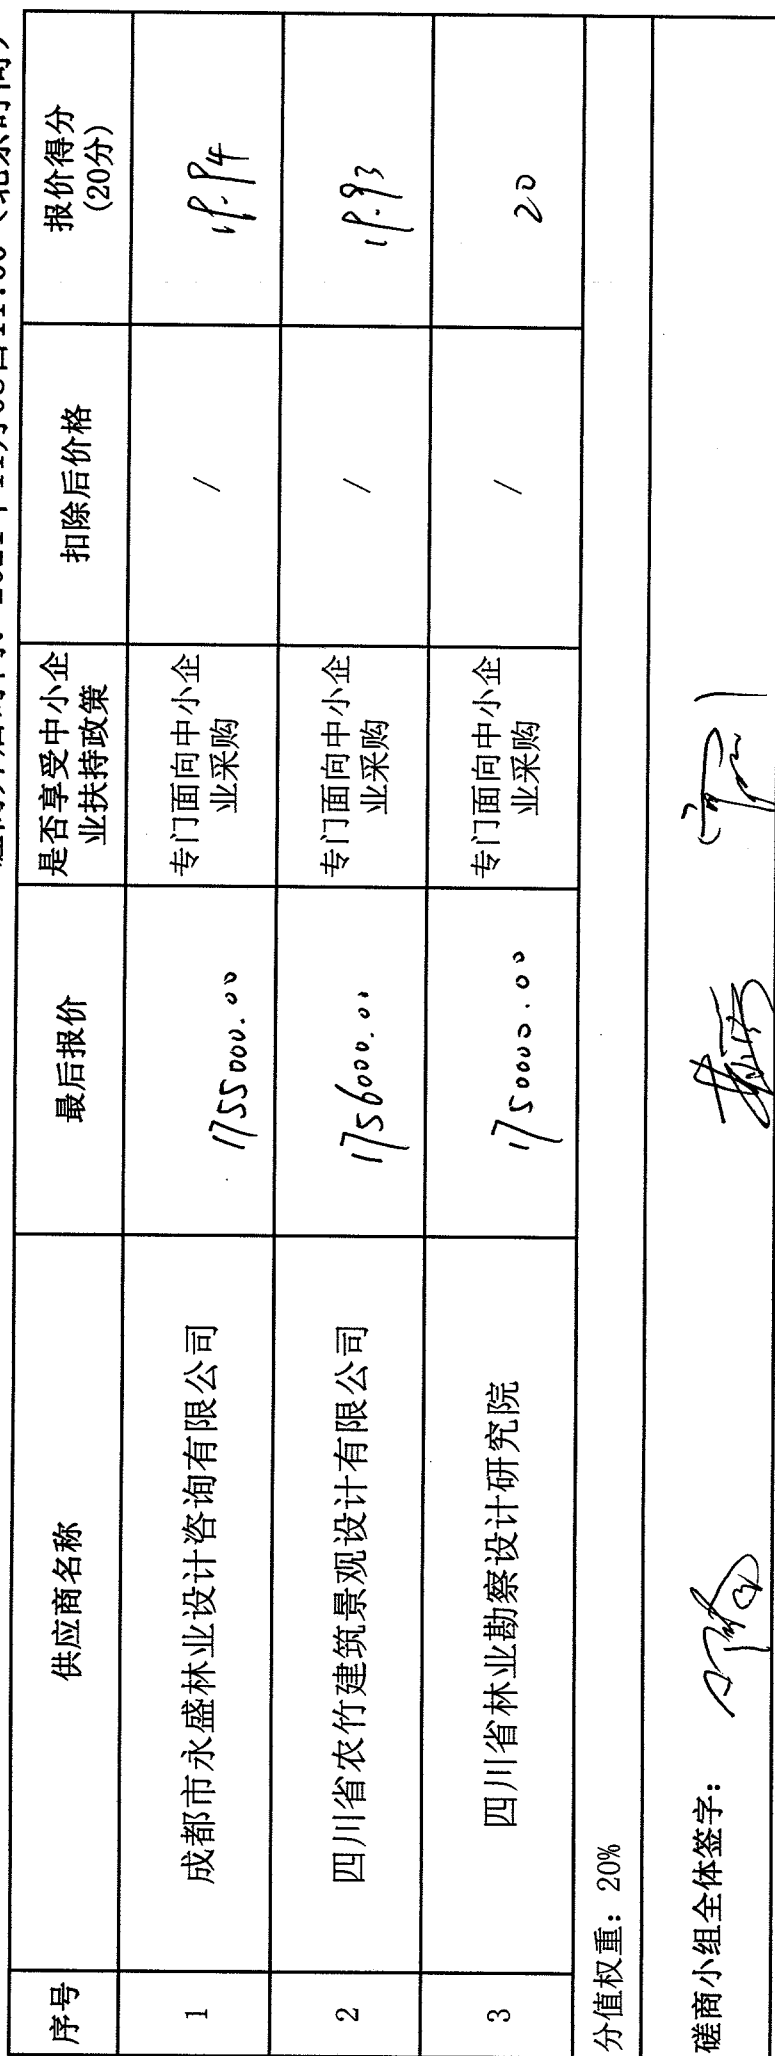 序号 供应商名称 最后报价 是否享受中小企业扶持政策 扣除后价格 报价得分(20分)
1 成都市永盛林业设计咨询有限公司 1755000.00 专门面向中小企业采购 / 19.94
2 四川省农竹建筑景观设计有限公司 1756000.00 专门面向中小企业采购 / 19.93
3 四川省林业勘察设计研究院 1750000.00 专门面向中小企业采购 / 20
分值权重：20%
磋商小组全体签字：